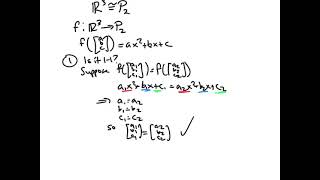 ℝ³ ≅ P₂
f: ℝ³ → P₂
f([a b c]) = ax²+bx+c
① Is it 1-1?
Suppose f([a₁ b₁ c₁]) = f([a₂ b₂ c₂])
a₁x²+b₁x+c₁ = a₂x²+b₂x+c₂
⟹ a₁=a₂
b₁=b₂
c₁=c₂
so [a₁ b₁ c₁] = [a₂ b₂ c₂] ✓